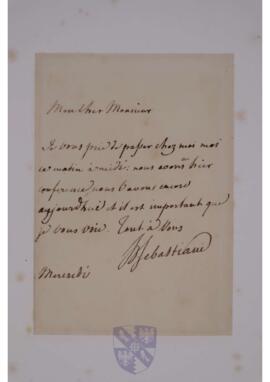 Mon cher Monsieur
Je vous prie de passer chez moi
ce matin à midi: nous avons hier
conference, nous l'avons encore
aujourd'hui et il est important que
je vous voie. Tout à Vous
Sebastiani
Mercredi